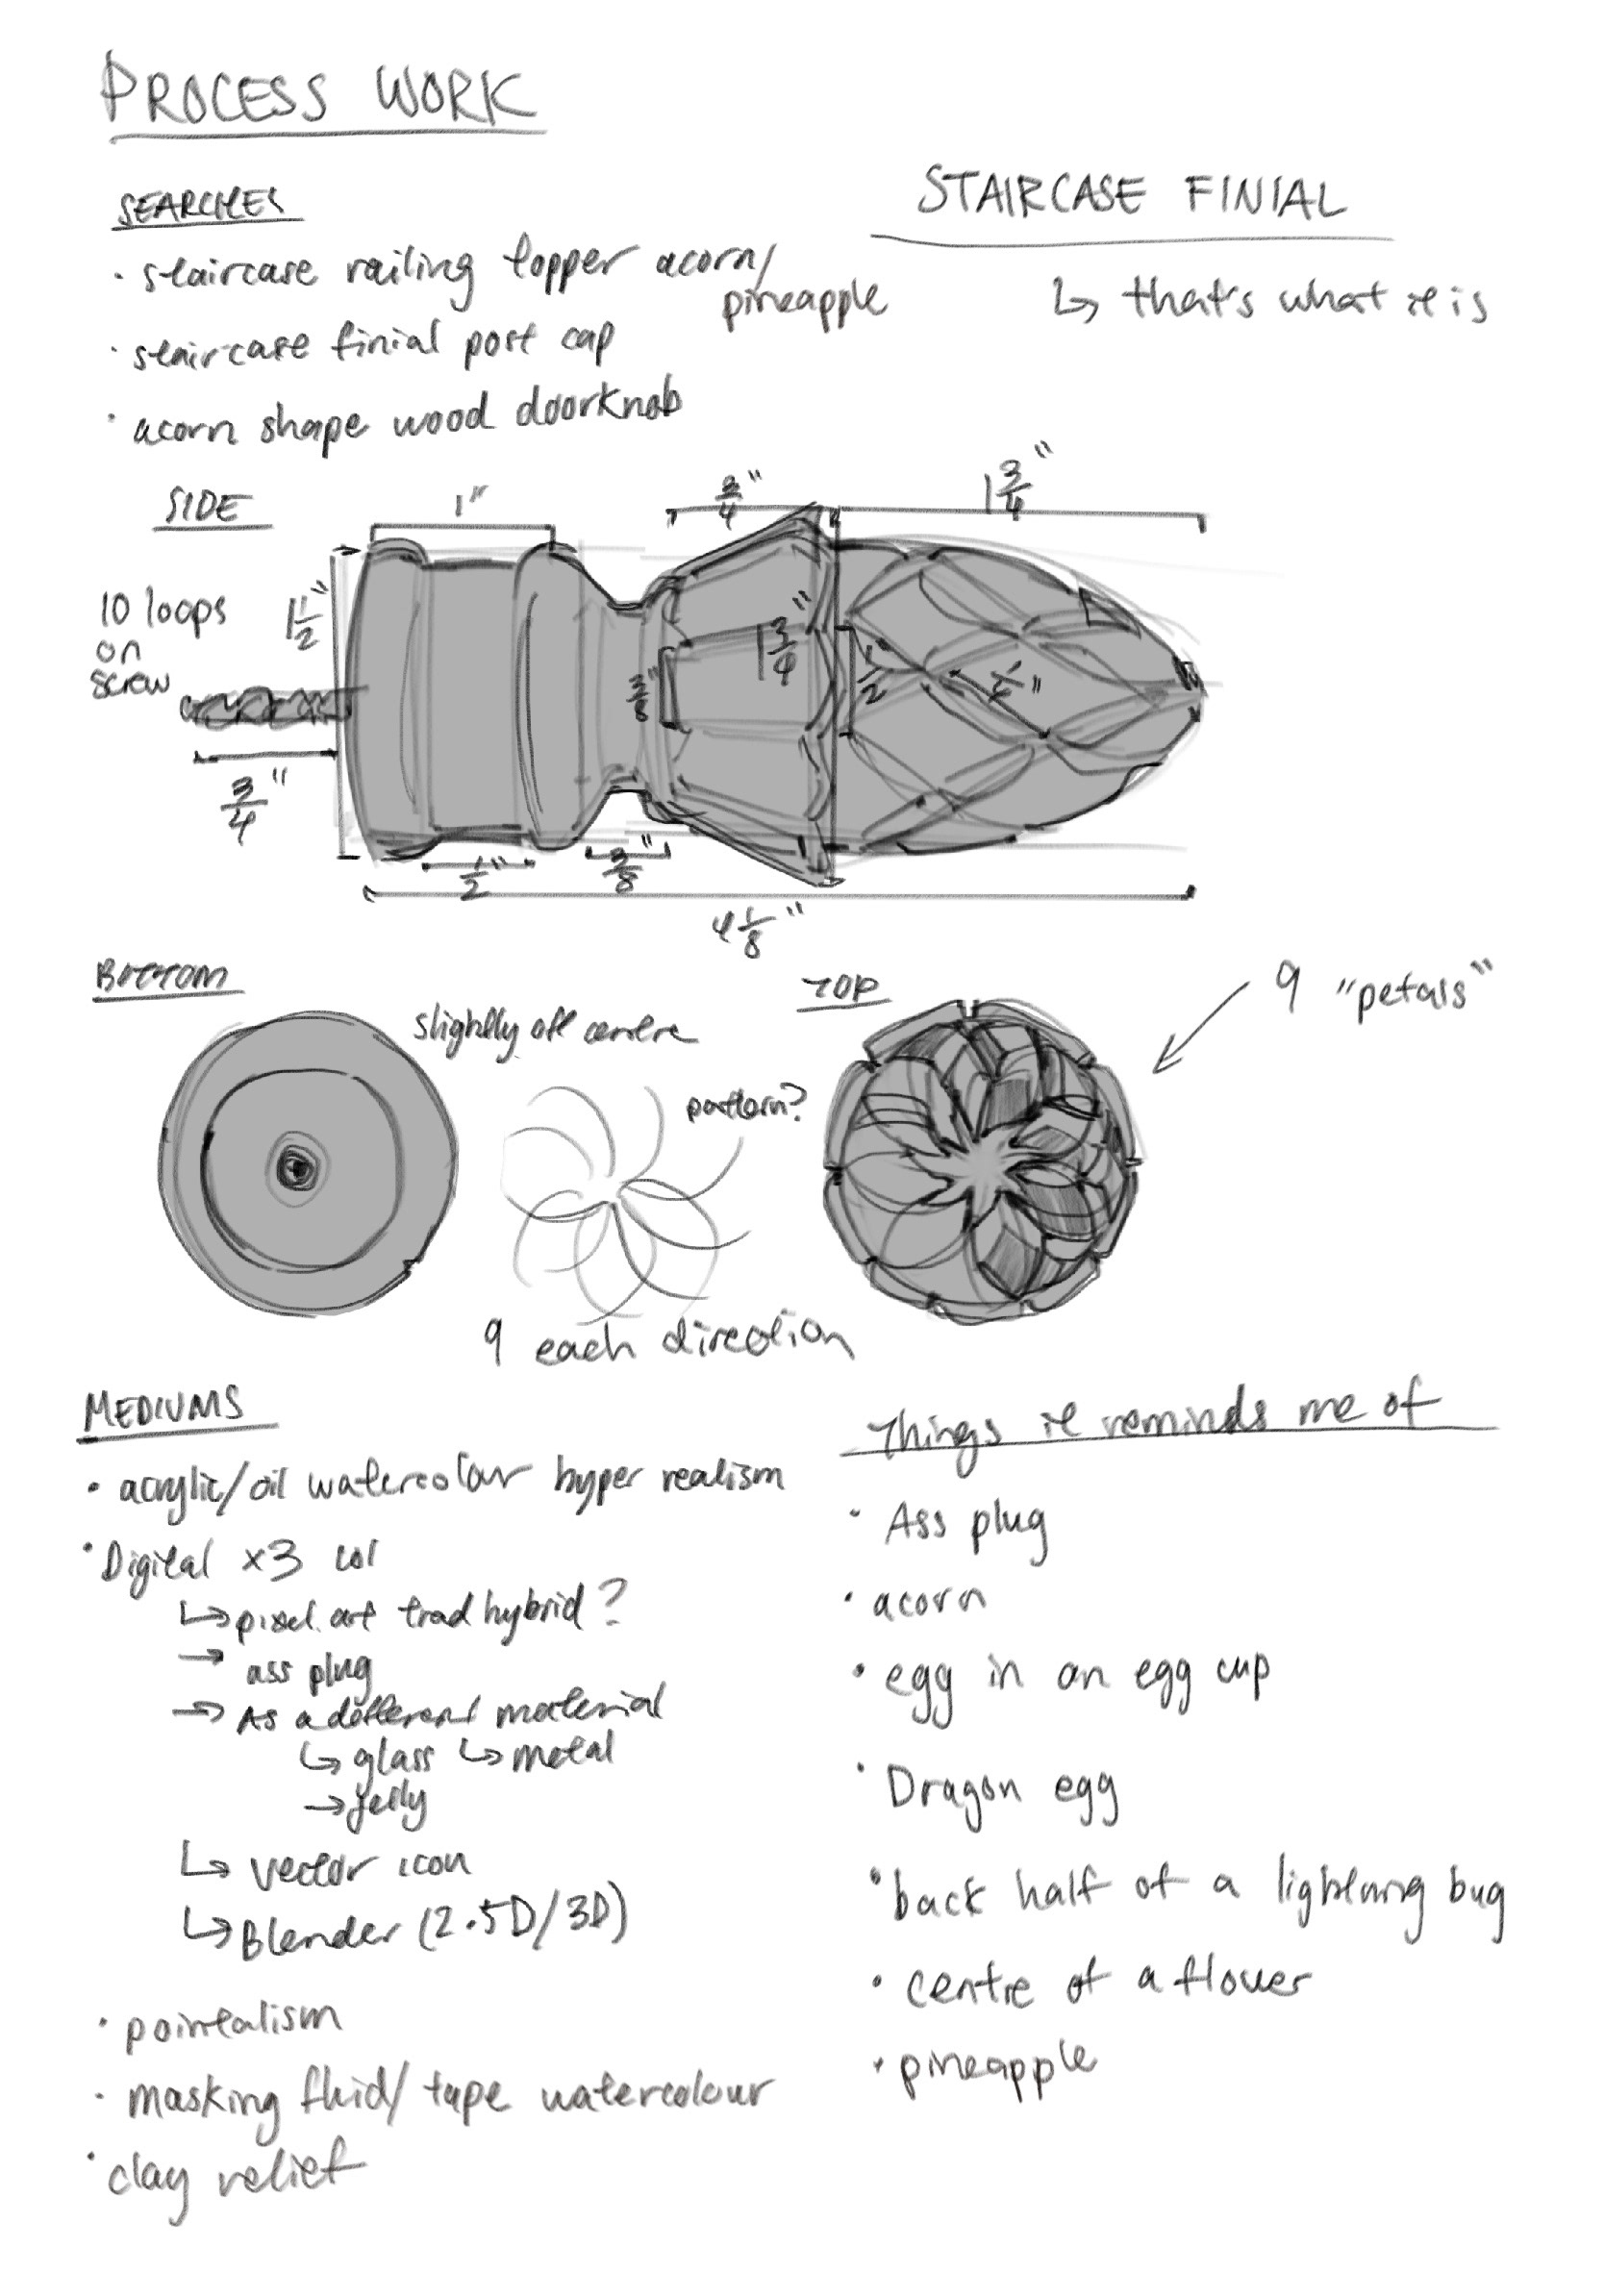 PROCESS WORK
SEARCHES
· staircase railing topper acorn/
pineapple
· staircase finial post cap
· acorn shape wood doorknob
STAIRCASE FINIAL
↳ that's what it is
SIDE
1"
3/4"
1 3/4"
10 loops
on
screw
1 1/2"
3/8"
1 3/4"
1/2"
1/4"
3/4"
1/2"
3/8"
4 1/8"
BOTTOM
slightly off centre
pattern?
9 each direction
TOP
9 "petals"
MEDIUMS
· acrylic/oil watercolour hyper realism
· Digital x3 lol
↳ pixel art trad hybrid?
→ ass plug
→ As a different material
↳ glass ↳ metal
→ jelly
↳ vector icon
↳ Blender (2.5D/3D)
· pointealism
· masking fluid/ tape watercolour
· clay relief
Things it reminds me of
· Ass plug
· acorn
· egg in an egg cup
· Dragon egg
· back half of a lightning bug
· centre of a flower
· pineapple